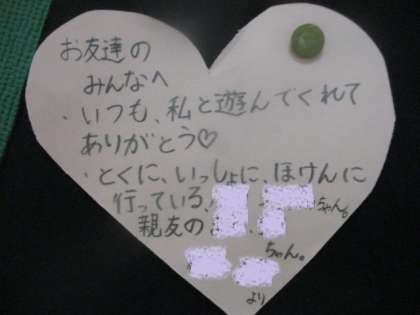 お友達の
みんなへ
・いつも、私と遊んでくれて
ありがとう♡
・とくに、いっしょに、ほけんに
行っている、 ・ ちゃん。
親友の ・
ちゃん。
より